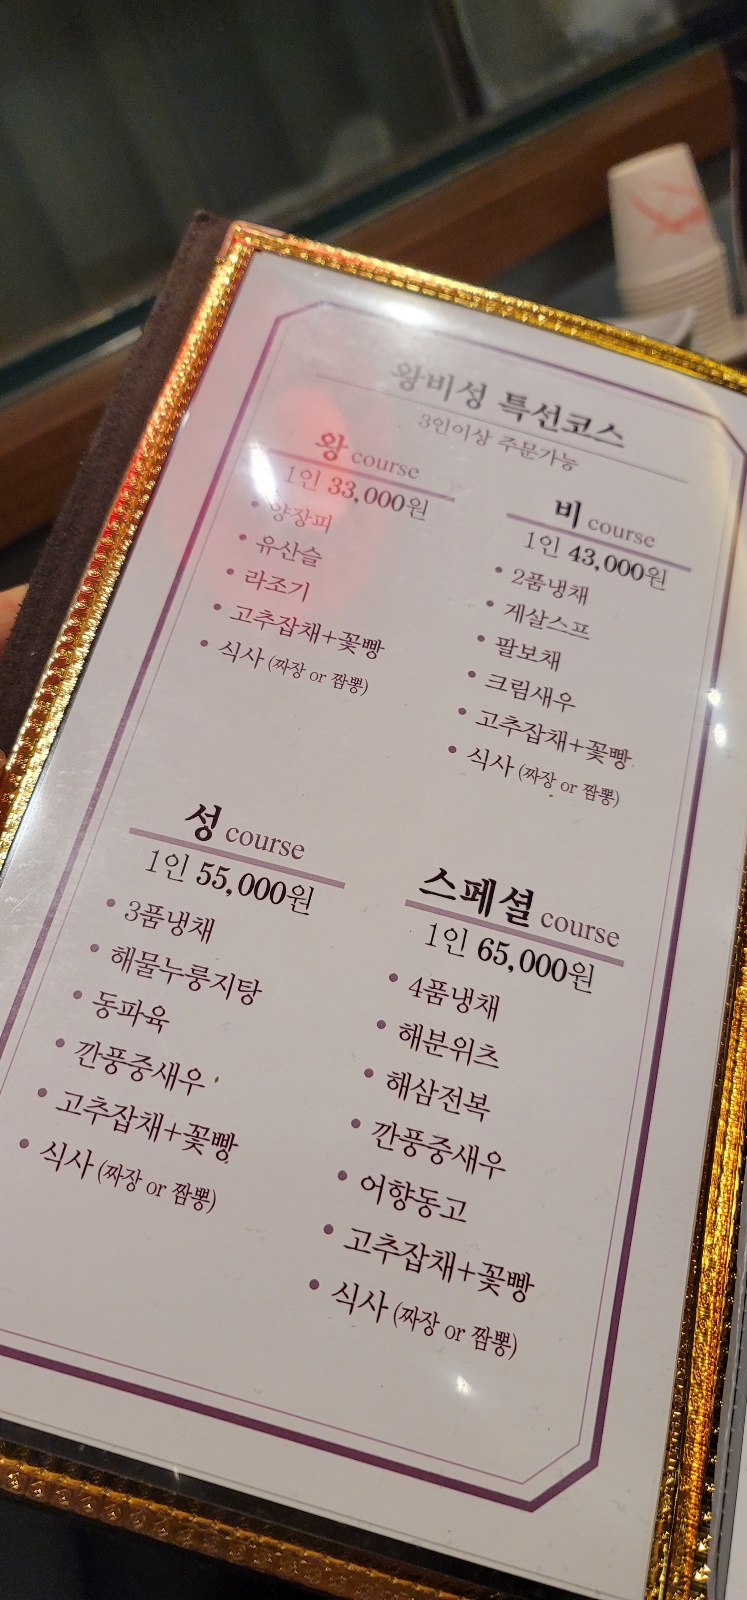 왕비성 특선코스
3인이상 주문가능
왕 course
1인 33,000원
• 양장피
• 유산슬
• 라조기
• 고추잡채+꽃빵
• 식사 (짜장 or 짬뽕)
비 course
1인 43,000원
• 2품냉채
• 게살스프
• 팔보채
• 크림새우
• 고추잡채+꽃빵
• 식사 (짜장 or 짬뽕)
성 course
1인 55,000원
• 3품냉채
• 해물누룽지탕
• 동파육
• 깐풍중새우
• 고추잡채+꽃빵
• 식사 (짜장 or 짬뽕)
스페셜 course
1인 65,000원
• 4품냉채
• 해분위츠
• 해삼전복
• 깐풍중새우
• 어향동고
• 고추잡채+꽃빵
• 식사 (짜장 or 짬뽕)